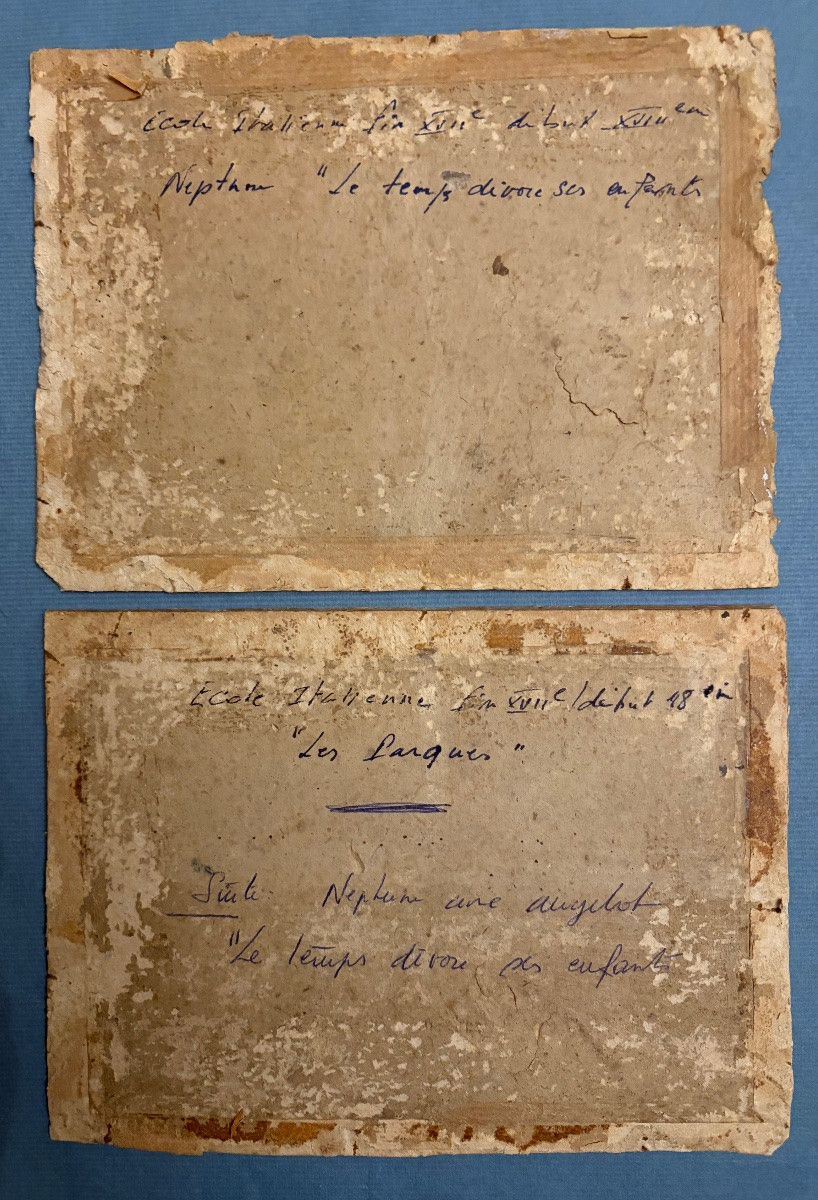 Ecole Italienne fin XVIIe début XVIIIem
Neptune "Le temps dévore ses enfants
Ecole Italienne fin XVIIe/début 18em
"Les Parques"
Suite Neptune avec angelot
"Le temps dévore ses enfants